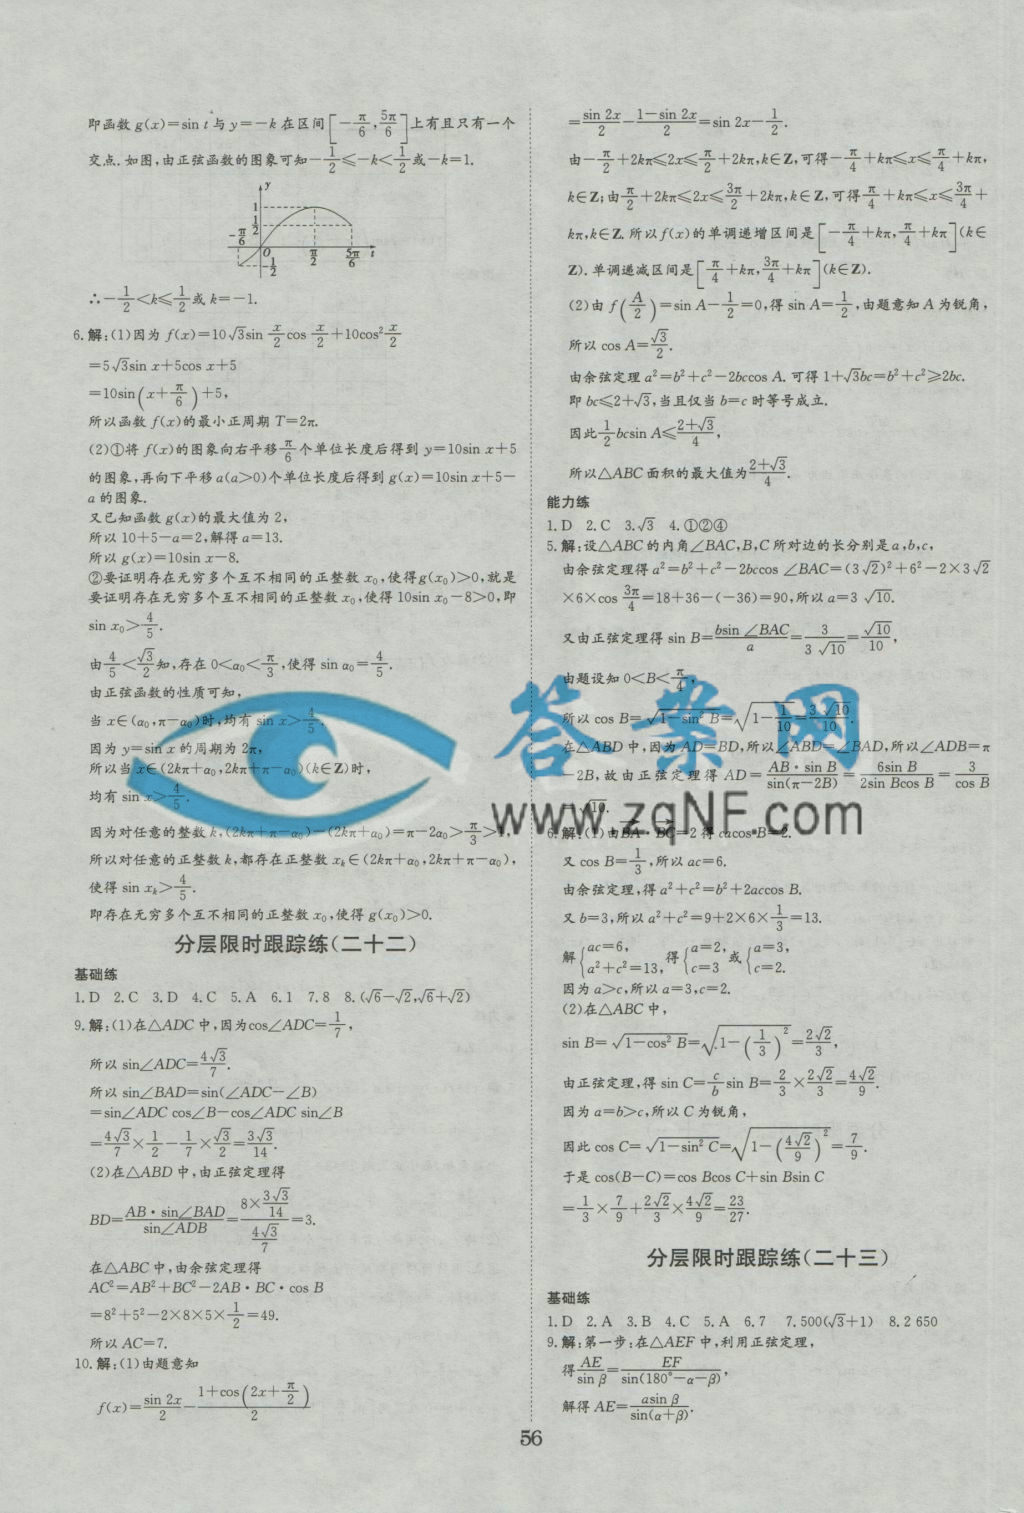 即函数 g(x)=sin t 与 y=-k 在区间[-π/6, 5π/6]上有且只有一个
交点. 如图,由正弦函数的图象可知-1/2≤-k<1/2或-k=1.
y
1
1/2
-π/6
O
-1/2
π/2
5π/6
t
∴-1/2<k≤1/2或 k=-1.
6.解:(1)因为 f(x)=10√3sin x/2 cos x/2+10cos² x/2
=5√3sin x+5cos x+5
=10sin(x+π/6)+5,
所以函数 f(x)的最小正周期 T=2π.
(2)①将 f(x)的图象向右平移π/6个单位长度后得到 y=10sin x+5
的图象,再向下平移 a(a>0)个单位长度后得到 g(x)=10sin x+5-
a 的图象.
又已知函数 g(x)的最大值为 2,
所以 10+5-a=2,解得 a=13.
所以 g(x)=10sin x-8.
②要证明存在无穷多个互不相同的正整数 x₀,使得g(x₀)>0,就是
要证明存在无穷多个互不相同的正整数 x₀,使得 10sin x₀-8>0,即
sin x₀>4/5.
由4/5<√3/2知,存在 0<α₀<π/3,使得 sin α₀=4/5.
由正弦函数的性质可知,
当 x∈(α₀,π-α₀)时,均有 sin x>4/5.
因为 y=sin x 的周期为 2π,
所以当 x∈(2kπ+α₀,2kπ+π-α₀)(k∈Z)时,
均有 sin x>4/5.
因为对任意的整数 k,(2kπ+π-α₀)-(2kπ+α₀)=π-2α₀>π/3>1,
所以对任意的正整数 k,都存在正整数 xₖ∈(2kπ+α₀,2kπ+π-α₀),
使得 sin xₖ>4/5.
即存在无穷多个互不相同的正整数 x₀,使得 g(x₀)>0.
分层限时跟踪练(二十二)
基础练
1.D 2.C 3.D 4.C 5.A 6.1 7.8 8.(√6-√2,√6+√2)
9.解:(1)在△ADC 中,因为cos∠ADC=1/7,
所以 sin∠ADC=4√3/7.
所以 sin∠BAD=sin(∠ADC-∠B)
=sin∠ADC cos∠B-cos∠ADC sin∠B
=4√3/7×1/2-1/7×√3/2=3√3/14.
(2)在△ABD 中,由正弦定理得
BD=AB·sin∠BAD/sin∠ADB=(8×3√3/14)/(4√3/7)=3.
在△ABC 中,由余弦定理得
AC²=AB²+BC²-2AB·BC·cos B
=8²+5²-2×8×5×1/2=49.
所以 AC=7.
10.解:(1)由题意知
f(x)=sin 2x/2-(1+cos(2x+π/2))/2
=sin 2x/2-(1-sin 2x)/2=sin 2x-1/2.
由-π/2+2kπ≤2x≤π/2+2kπ,k∈Z,可得-π/4+kπ≤x≤π/4+kπ,
k∈Z;由π/2+2kπ≤2x≤3π/2+2kπ,k∈Z,可得π/4+kπ≤x≤3π/4+
kπ,k∈Z.所以 f(x)的单调递增区间是[-π/4+kπ,π/4+kπ](k∈
Z).单调递减区间是[π/4+kπ,3π/4+kπ](k∈Z).
(2)由 f(A/2)=sin A-1/2=0,得 sin A=1/2,由题意知 A 为锐角,
所以 cos A=√3/2.
由余弦定理 a²=b²+c²-2bccos A.可得 1+√3bc=b²+c²≥2bc.
即 bc≤2+√3,当且仅当 b=c 时等号成立.
因此1/2bcsin A≤(2+√3)/4,
所以△ABC 面积的最大值为(2+√3)/4.
能力练
1.D 2.C 3.√3 4.①②④
5.解:设△ABC 的内角∠BAC,B,C 所对边的长分别是 a,b,c,
由余弦定理得 a²=b²+c²-2bccos ∠BAC=(3√2)²+6²-2×3√2
×6×cos 3π/4=18+36-(-36)=90,所以 a=3√10.
又由正弦定理得 sin B=bsin ∠BAC/a=3/(3√10)=√10/10,
由题设知 0<B<π/4,
所以 cos B=√(1-sin² B)=√(1-1/10)=3√10/10.
在△ABD 中,因为 AD=BD,所以∠ABD=∠BAD,所以∠ADB=π
-2B,故由正弦定理得 AD=AB·sin B/sin(π-2B)=6sin B/(2sin Bcos B)=3/cos B
=√10.
6.解:(1)由BA·BC=2 得 cacos B=2.
又 cos B=1/3,所以 ac=6.
由余弦定理,得 a²+c²=b²+2accos B.
又 b=3,所以 a²+c²=9+2×6×1/3=13.
解{ac=6, a²+c²=13,得{a=2, c=3或{a=3, c=2.
因为 a>c,所以 a=3,c=2.
(2)在△ABC 中,
sin B=√(1-cos² B)=√(1-(1/3)²)=2√2/3,
由正弦定理,得 sin C=c/b sin B=2/3×2√2/3=4√2/9.
因为 a=b>c,所以 C 为锐角,
因此 cos C=√(1-sin² C)=√(1-(4√2/9)²)=7/9.
于是 cos(B-C)=cos Bcos C+sin Bsin C
=1/3×7/9+2√2/3×4√2/9=23/27.
分层限时跟踪练(二十三)
基础练
1.D 2.A 3.B 4.C 5.A 6.7 7.500(√3+1) 8.2 650
9.解:第一步:在△AEF 中,利用正弦定理,
得AE/sin β=EF/sin(180°-α-β),
解得 AE=asin β/sin(α+β).
56
答案网
www.zqNF.com